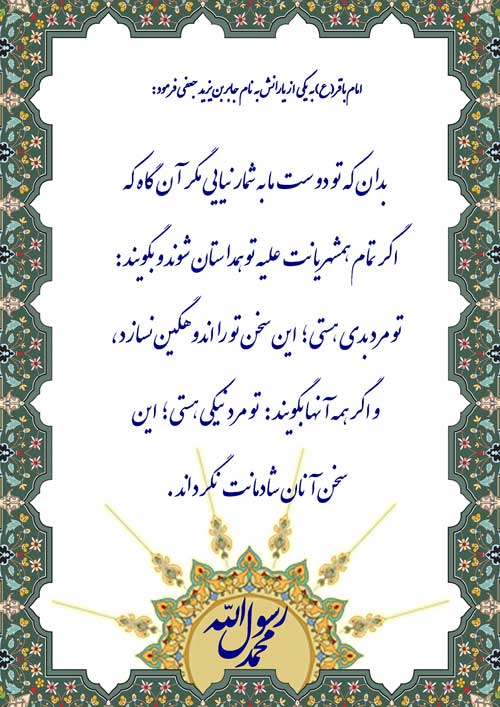 امام باقر(ع)به یکی از یارانش به نام جابر بن یزید جعفی فرمود:
بدان که تو دوست ما به شمار نیایی مگر آن گاه که
اگر تمام همشهریانت علیه تو همداستان شوند و بگویند:
تو مرد بدی هستی؛ این سخن تو را اندوهگین نسازد،
و اگر همه آنها بگویند: تو مرد نیکی هستی؛ این
سخن آنان شادمانت نگرداند.
محمد رسول الله